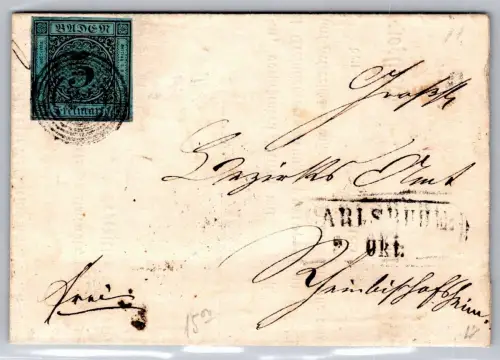 BADEN
3
Freimarke
Großh
Bezirks Amt
CARLSRUHE
2 Okt.
Rheinbischofsheim.
frei
15